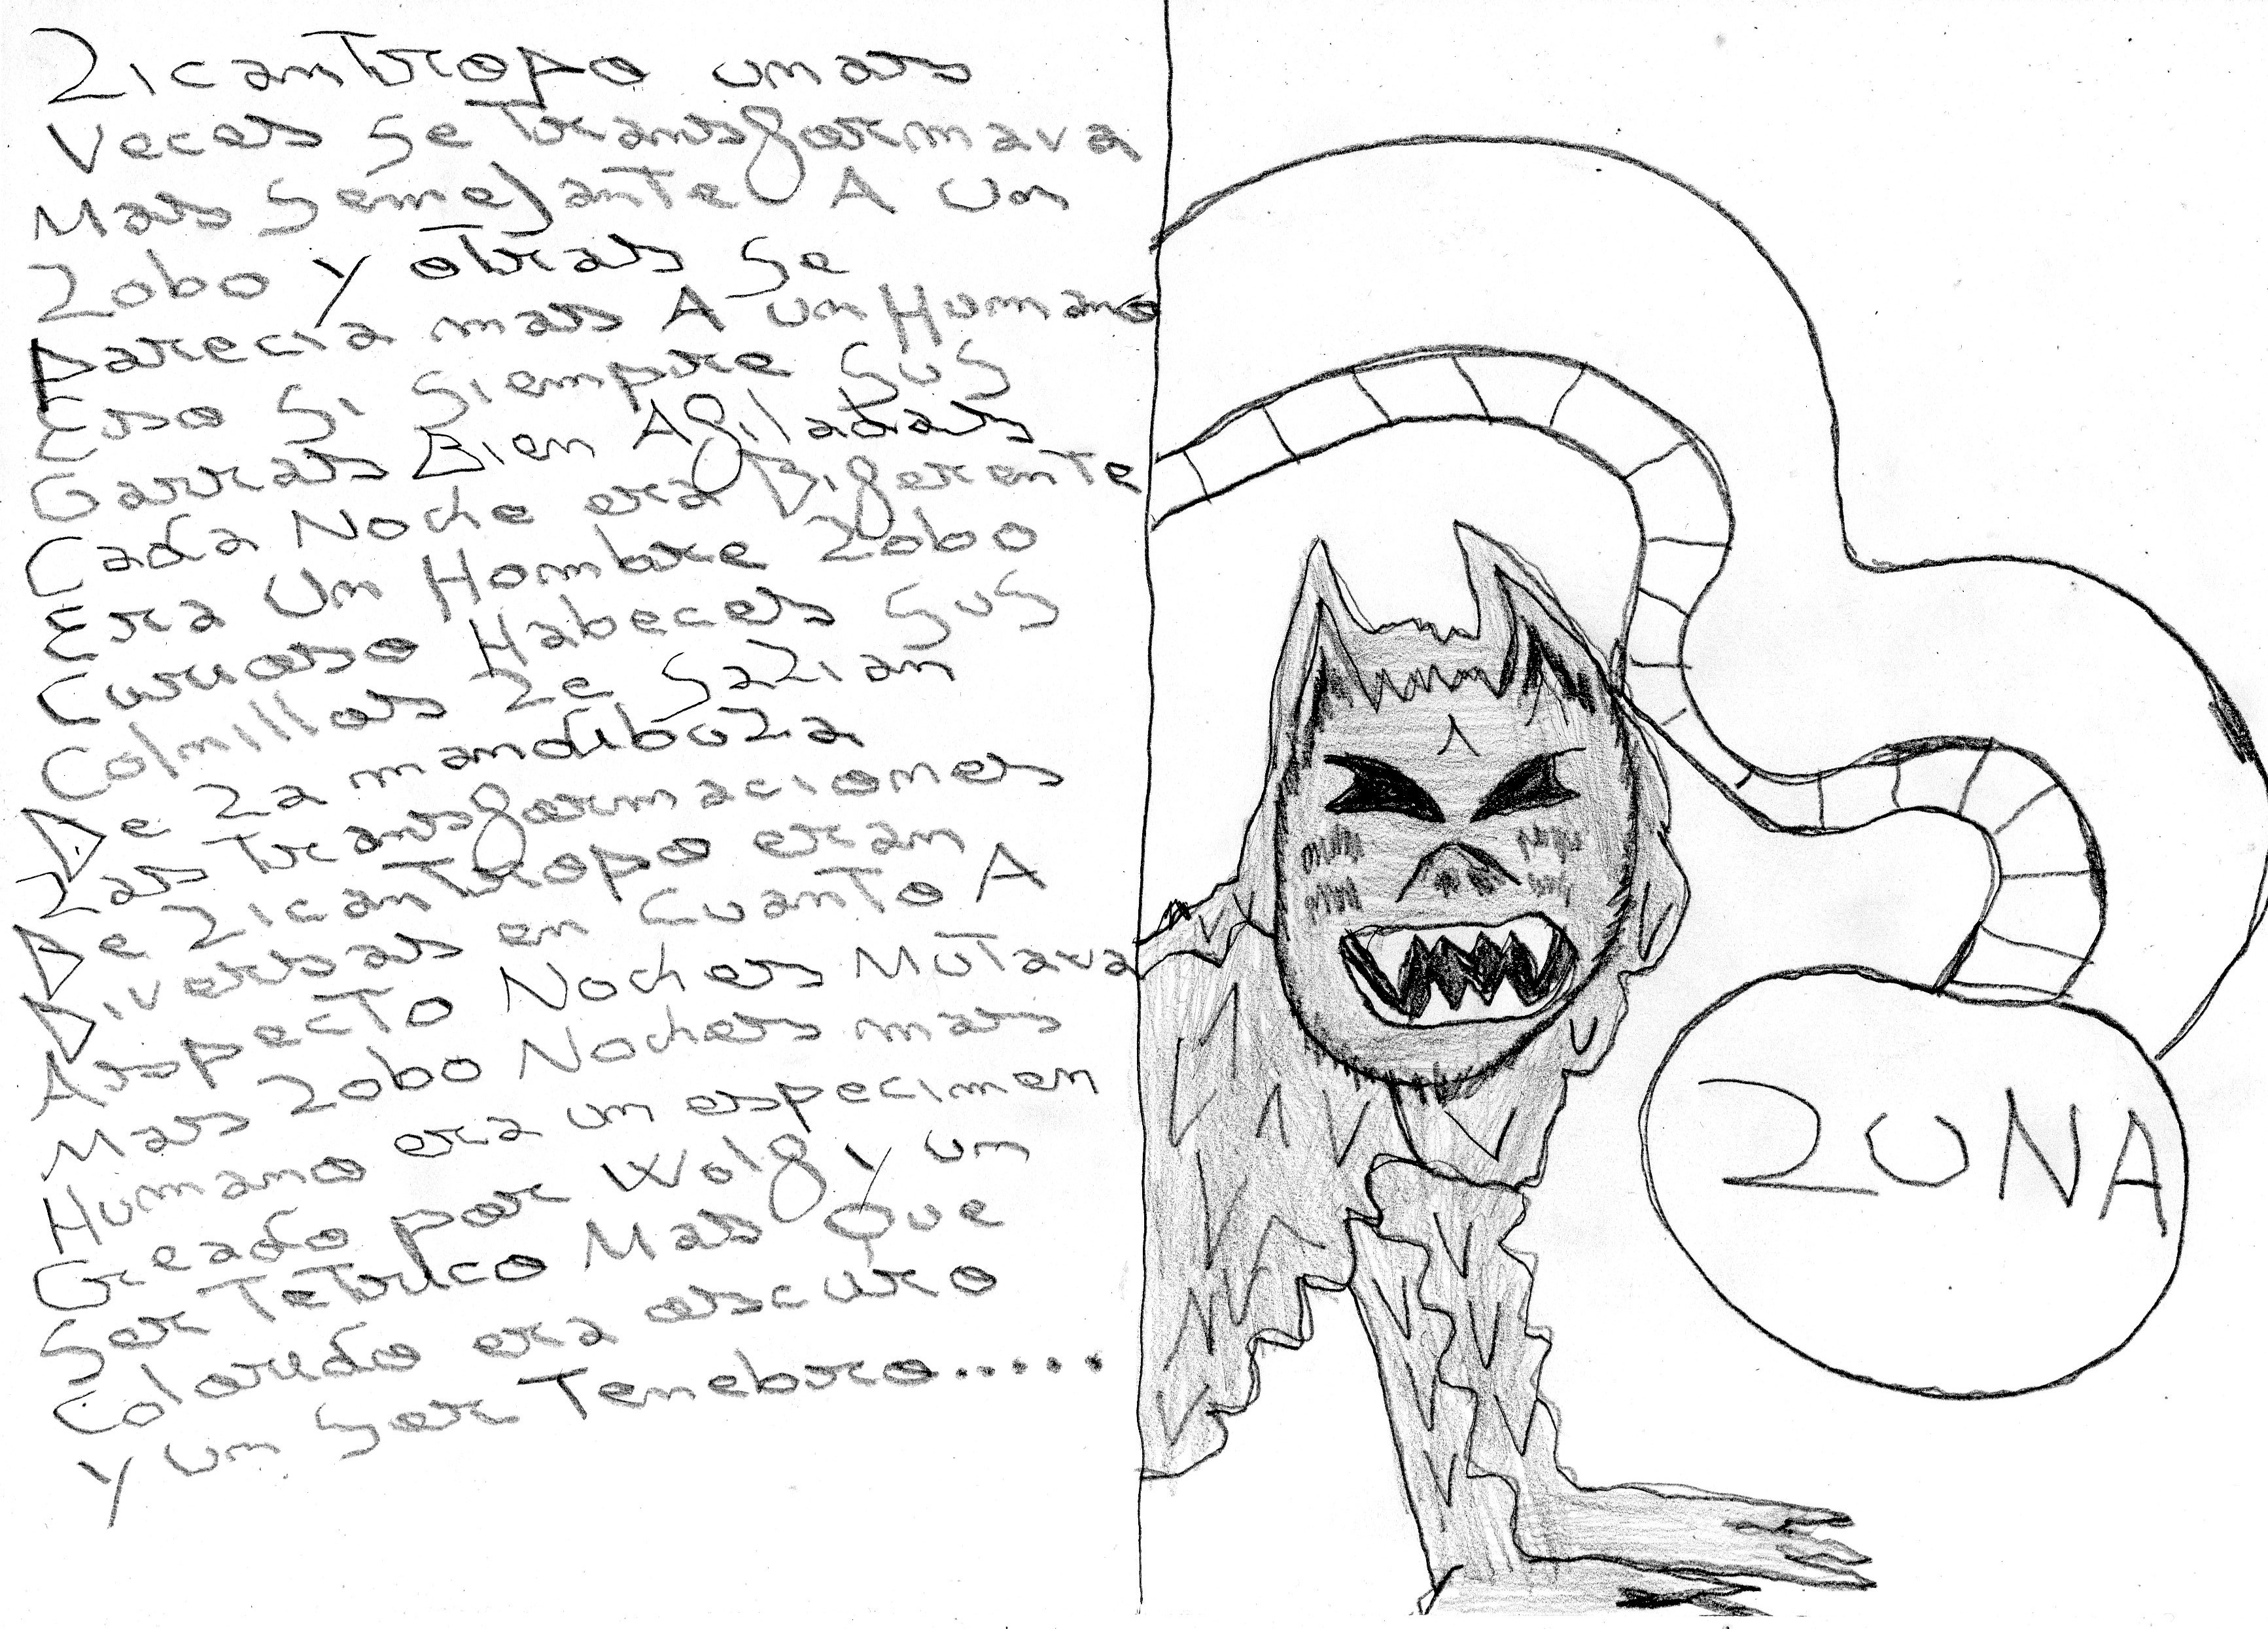 Licantropo unas
Veces se transformava
Mas semejante A un
Lobo y otras se
parecia mas A un Humano
Eso si siempre sus
Garras Bien Afiladas
Cada Noche era Diferente
Era Un Hombre Lobo
Curioso Habeces sus
Colmillos Le salian
De La mandibula
Las transformaciones
De Licantropo eran
Diversas en Cuanto A
Aspecto Noches Mutava
Mas Lobo Noches mas
Humano era un especimen
Creado por Wolf y un
Ser Tetrico Mas Que
Colorido era oscuro
y un ser Tenebro.....
LUNA